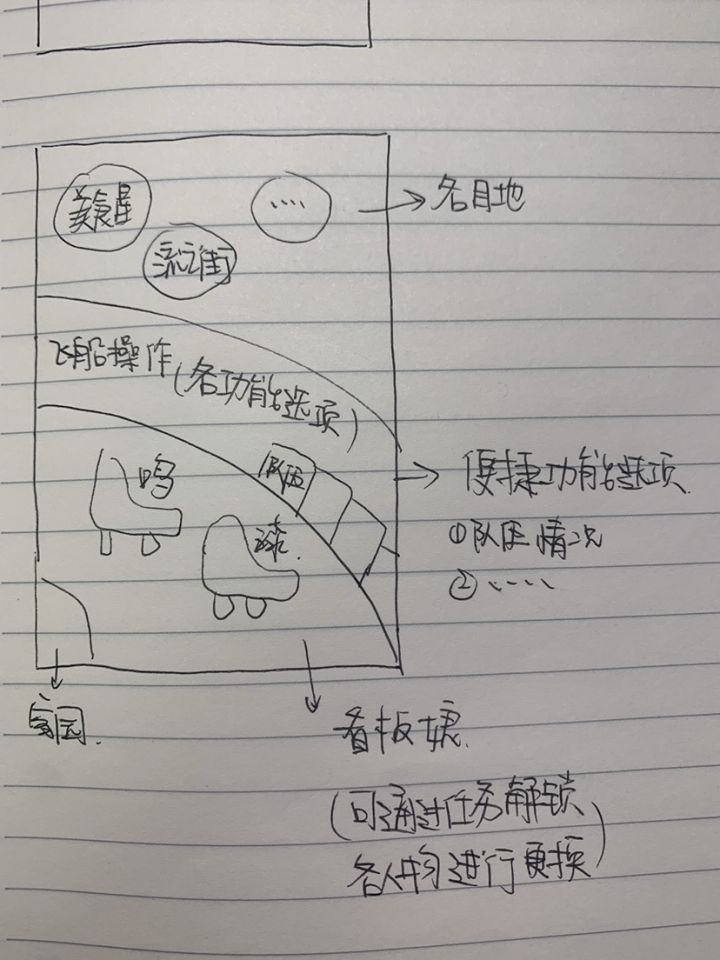 美食屋
....
流之街
→ 各目地
飞船操作(各功能选项)
队伍
鸣
漆.
→ 便捷功能选项.
①队伍情况
②.....
家园.
看板娘.
(可通过任务解锁
各人物进行更换)